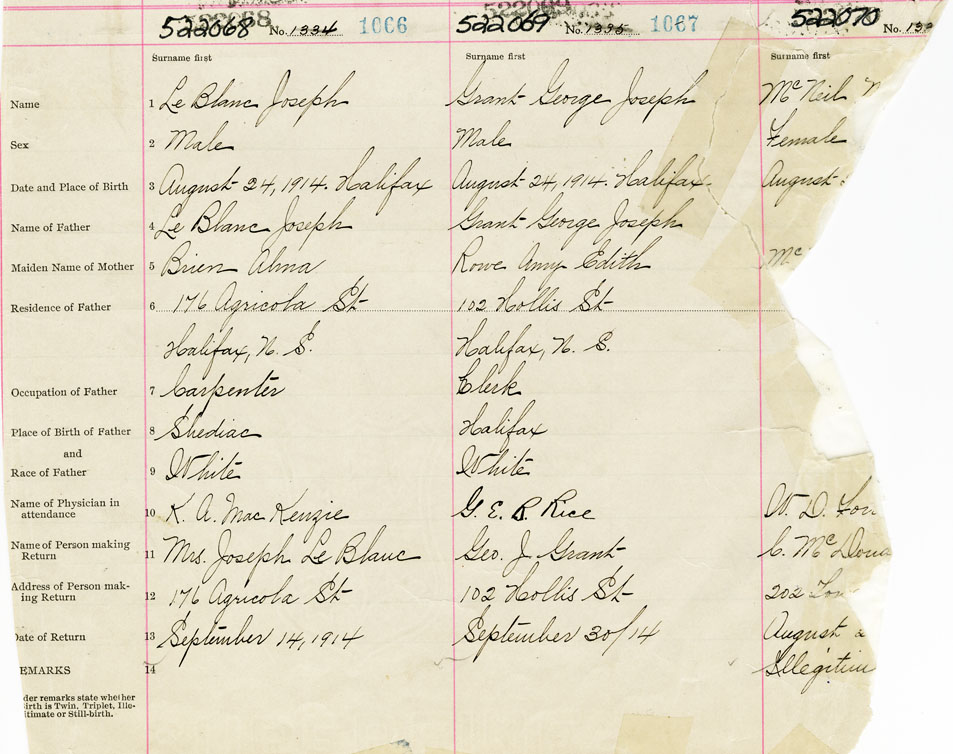 522068 No. 1334 1066 522069 No. 1335 1067 522070 No.
Surname first Surname first Surname first
Name 1 Le Blanc Joseph Grant George Joseph McNeil
Sex 2 Male Male Female
Date and Place of Birth 3 August 24, 1914. Halifax August 24, 1914. Halifax. August
Name of Father 4 Le Blanc Joseph Grant George Joseph
Maiden Name of Mother 5 Brien Alma Rowe Amy Edith Mc
Residence of Father 6 176 Agricola St 102 Hollis St
Halifax, N. S. Halifax, N. S.
Occupation of Father 7 Carpenter Clerk
Place of Birth of Father 8 Shediac Halifax
and
Race of Father 9 White White
Name of Physician in
attendance 10 K. A. Mac Kenzie G. E. R. Rice W. D.
Name of Person making
Return 11 Mrs. Joseph Le Blanc Geo. J. Grant C. McDona
Address of Person mak-
ing Return 12 176 Agricola St 102 Hollis St 202
Date of Return 13 September 14, 1914 September 30/14 August
EMARKS 14 Illegitim
der remarks state whether
irth is Twin, Triplet, Ille-
itimate or Still-birth.